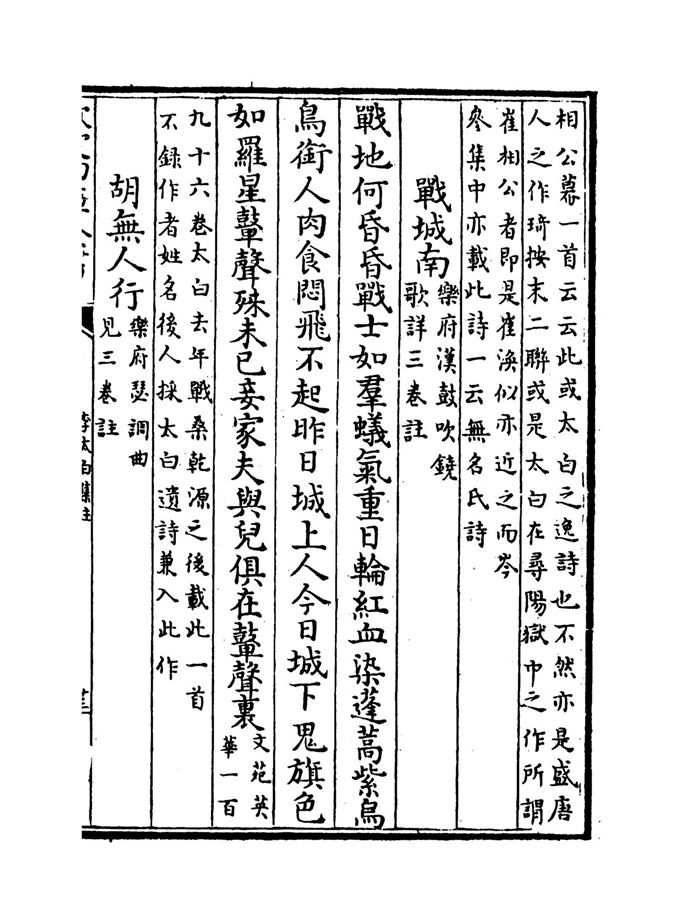 相公幕一首云云此或太白之逸詩也不然亦是盛唐
人之作琦按末二聯或是太白在尋陽獄中之作所謂
崔相公者即是崔渙似亦近之而岑
參集中亦載此詩一云無名氏詩
戰城南
樂府漢鼓吹鐃
歌詳三卷註
戰地何昏昏戰士如羣蟻氣重日輪紅血染蓬蒿紫烏
鳥銜人肉食悶飛不起昨日城上人今日城下鬼旗色
如羅星鼙聲殊未已妾家夫與兒俱在鼙聲裏
文苑英
華一百
九十六卷太白去年戰桑乾源之後載此一首
不録作者姓名後人採太白遺詩兼入此作
胡無人行
樂府瑟調曲
見三卷註
李太白集注